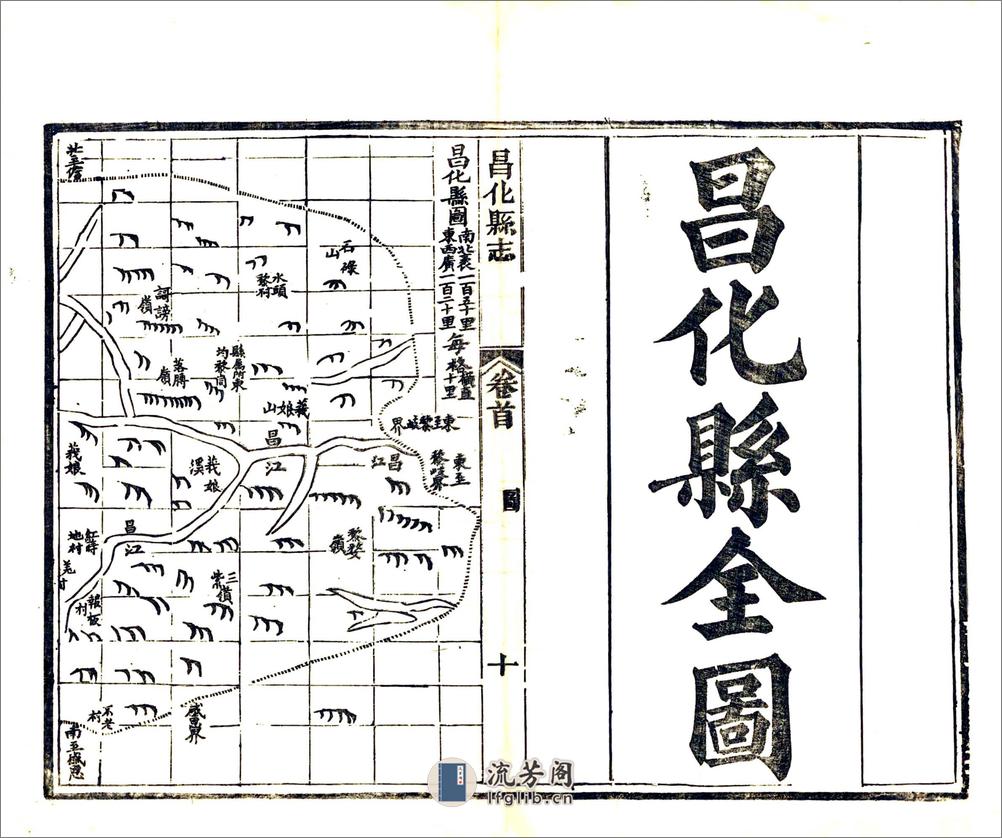 昌化縣全圖
昌化縣志
卷首
圖
十
昌化縣圖
南北袤一百五十里
東西廣一百二十里
每格
橫直
十里
石祿
山
水頭
黎村
訶謗
嶺
縣屬附東
均黎峒
落膊
嶺
莪娘
山
昌
江
東至黎岐
界
昌
江
東至
黎岐界
莪娘
溪
莪娘
昌
江
黎婺
嶺
三嶺
地村
羌村
報板
村
感恩界
不老
村
南至感恩
流芳阁
lfglib.cn